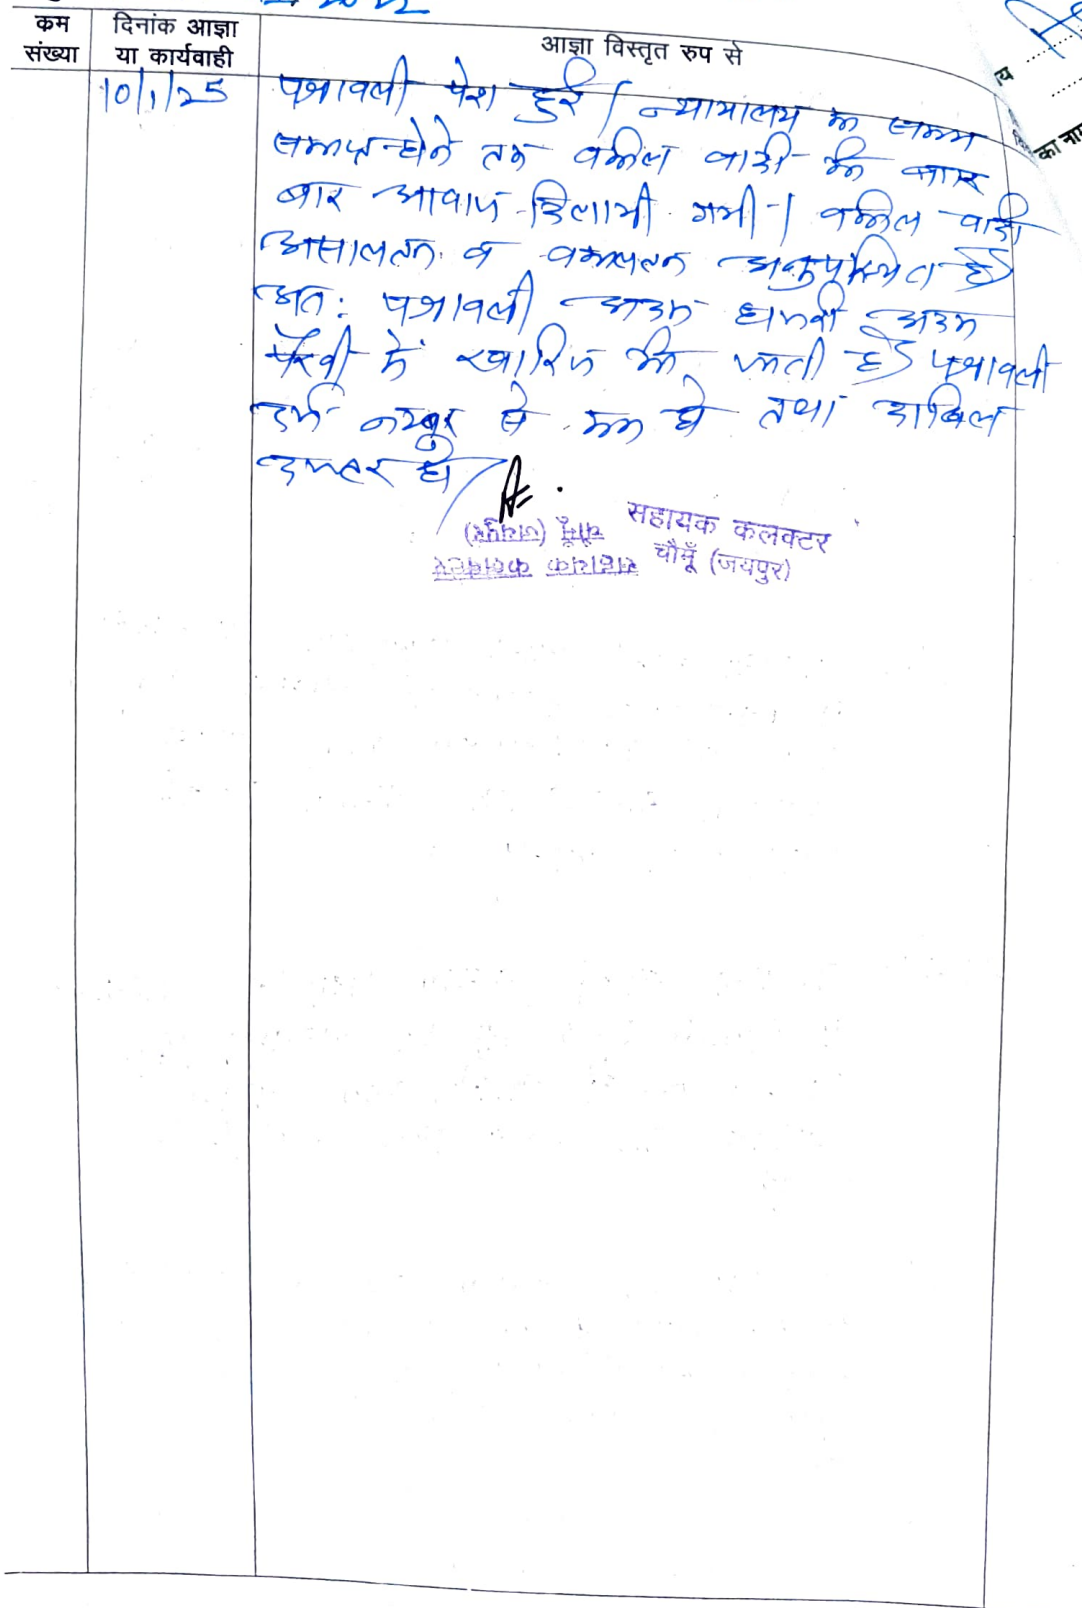 कम संख्या
दिनांक आज्ञा या कार्यवाही
आज्ञा विस्तृत रुप से
य
का नाम
10/1/25
पत्रावली पेश हुई / न्यायालय के समय
समाप्त होने तक वकिल वादी को बार
बार आवाज दिलायी गयी। वकिल वादी
असालतन व वकालतन अनुपस्थित है
अतः पत्रावली अदम हाजरी अदम
पैरवी में खारिज की जाती है पत्रावली
दर्ज नम्बर से कम हो तथा दाखिल
दफ्तर हो
सहायक कलक्टर
चौमूँ (जयपुर)
चौमूँ (जयपुर)
सहायक कलक्टर